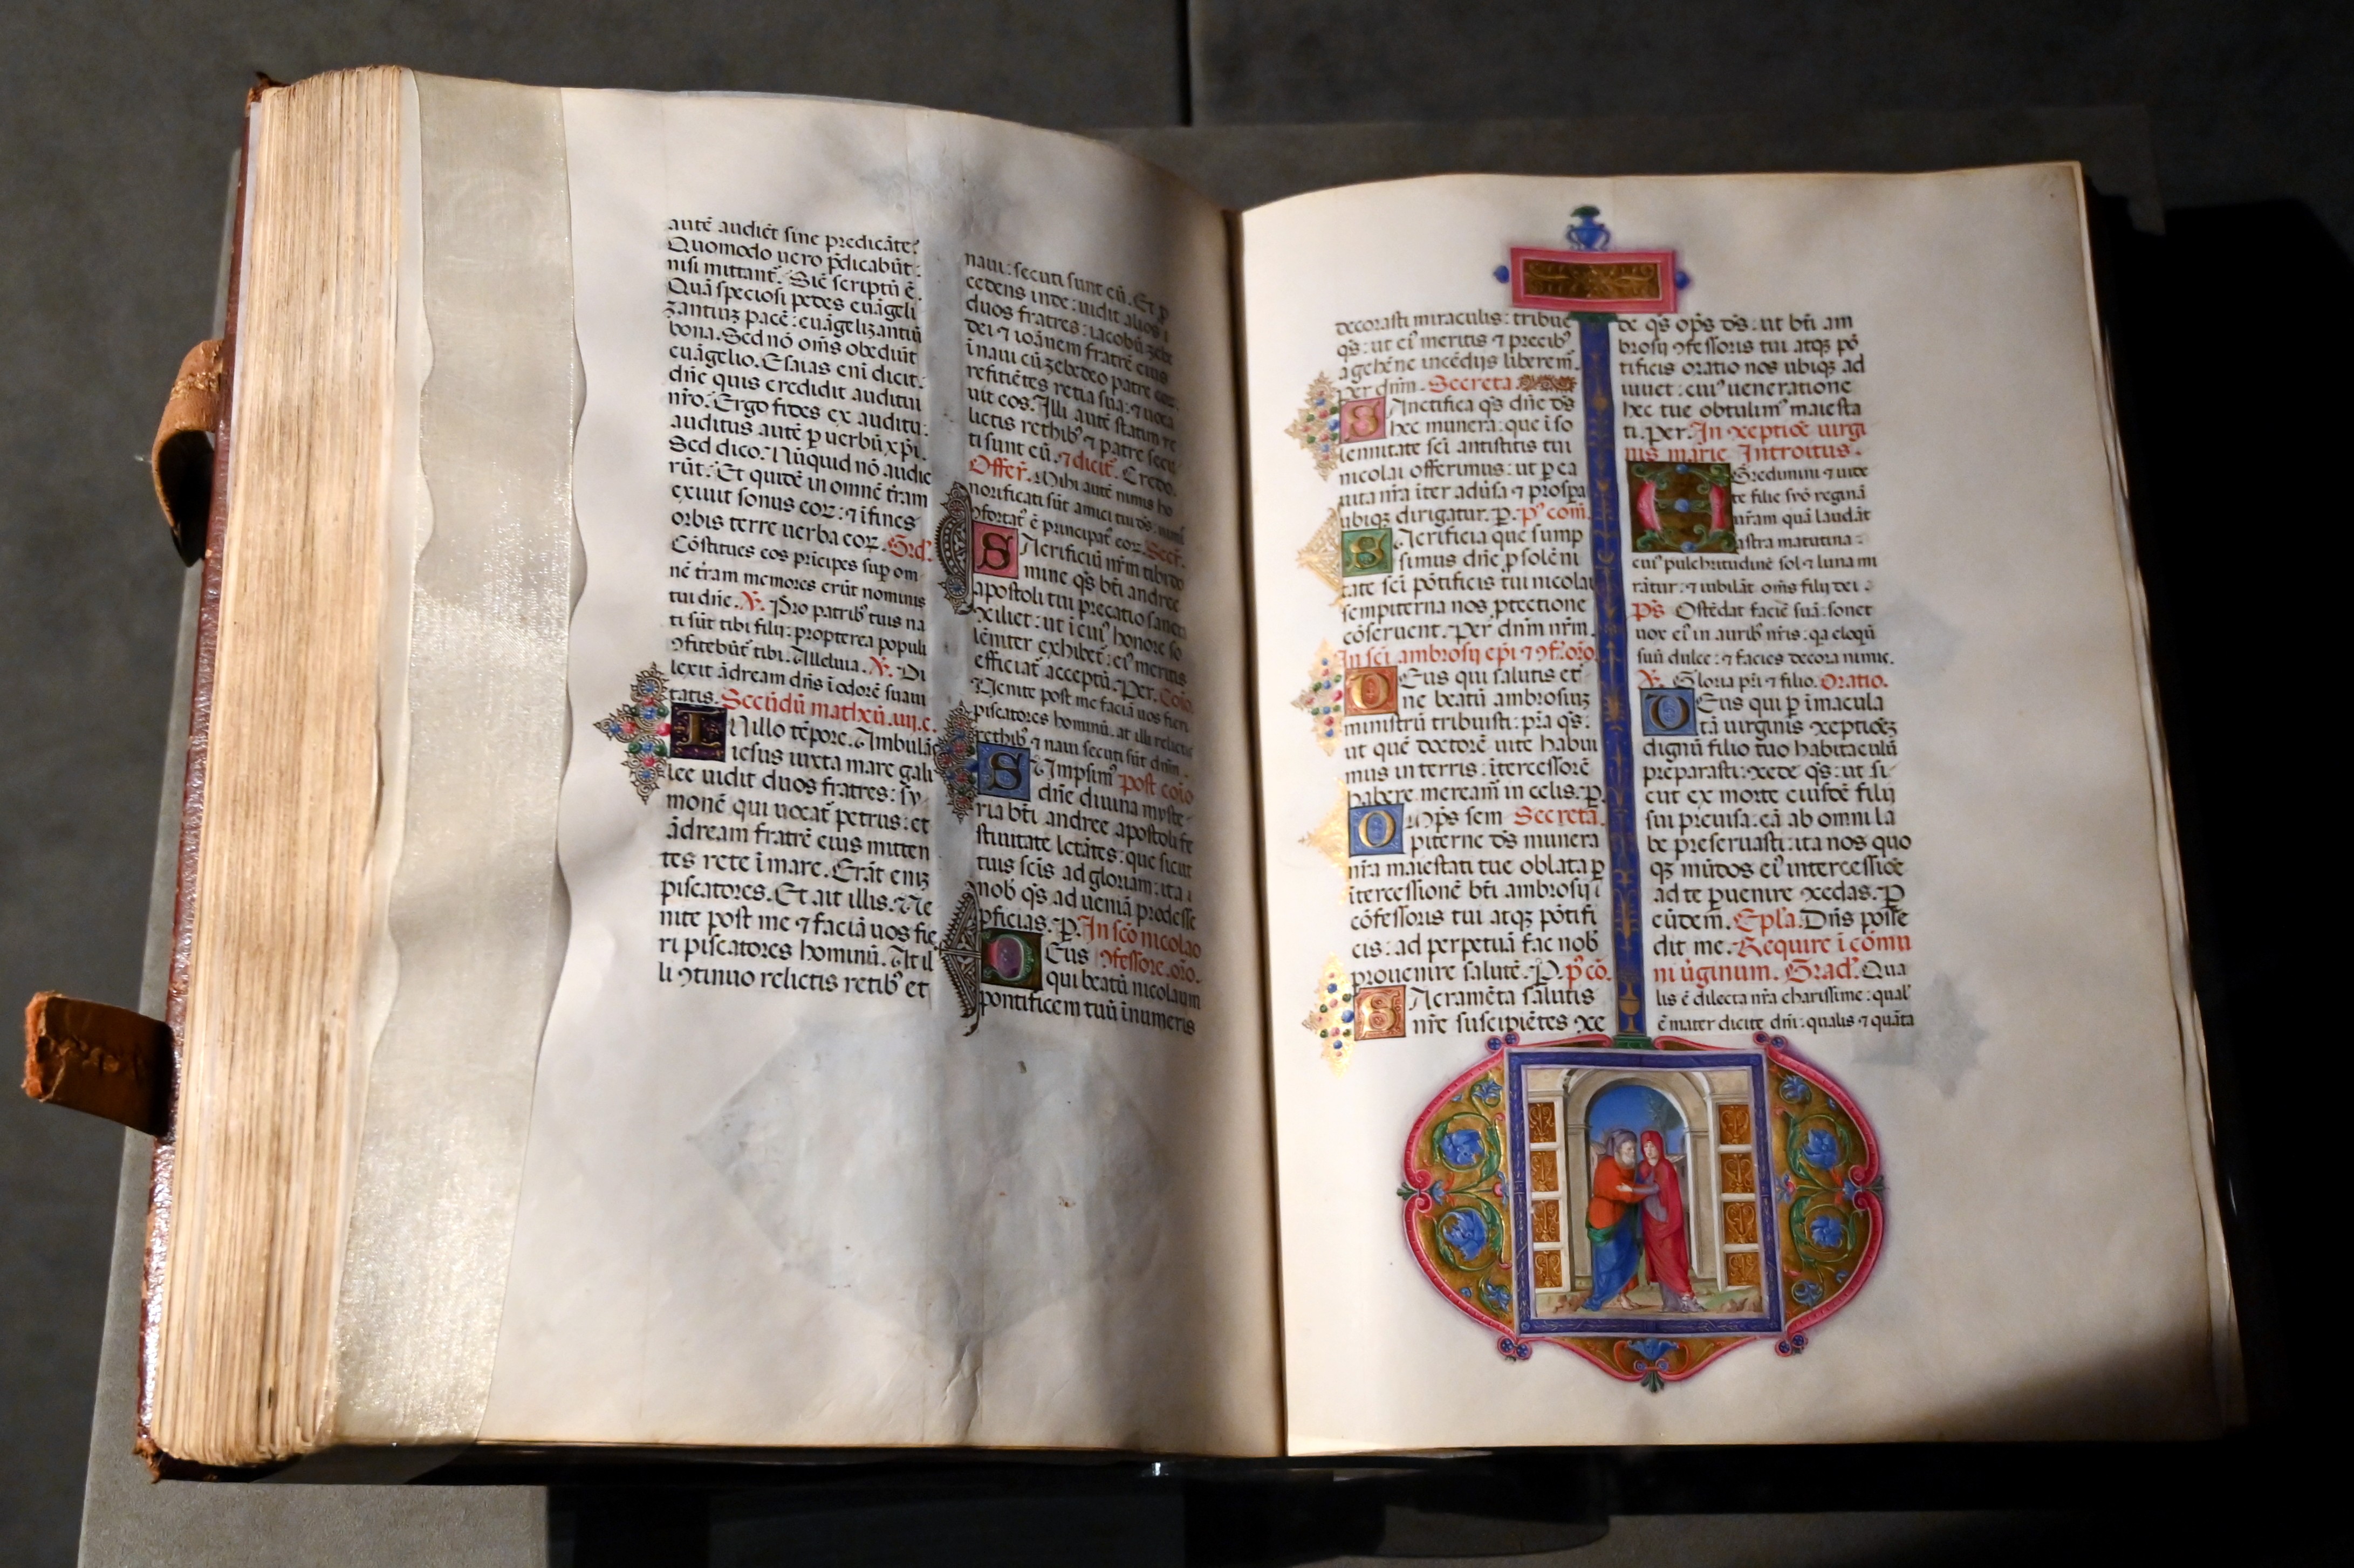 autē audiēt sine predicāte?
Quomodo uero p̄dicabūt:
nisi mittant. Sic̄ scriptū ē.
Quā speciosi pedes euāgeli
zantiuꝫ pacē: euāgelizantiū
bona. Sed nō om̄s obediūt
euāgelio. Esaias eni dicit:
dn̄e quis credidit auditui
nr̄o. Ergo fides ex auditu:
auditus autē p uerbū xp̄i.
Sed dico. Nūquid nō audie
rūt: Et quidē in omnē tr̄am
exiuit sonus eoꝝ: ⁊ ī fines
orbis terre uerba eoꝝ. Grd̄.
Cōstitues eos pricipes sup om
nē tr̄am memores erūt nominis
tui dn̄e. ℣. Pro patribꝰ tuis na
ti sūt tibi filij: propterea populi
ꝯfitebūt tibi. Alleluia. ℣. Di
lexit ādream dn̄s ī odorē suaui
tatis. Secūdū matheū .iiij. c.
IN illo tēpore. Ambulās
iesus iuxta mare gali
lee uidit duos fratres: sy
monē qui uocat̄ petrus: et
ādream fratrē eius mitten
tes rete ī mare. Erāt eniꝫ
piscatores. Et ait illis. Ve
nite post me ⁊ faciā uos fie
ri piscatores hominū. At il
li ꝯtinuo relictis retibꝰ et
naui: secuti sunt eū. Et p
cedens inde: uidit alios
duos fratres: iacobū zebe
dei ⁊ ioānem fratrē eius
ī naui cū zebedeo patre eoꝝ:
reficiētes retia sua: ⁊ uoca
uit eos. Illi autē statim re
lictis rethibꝰ ⁊ patre secu
ti sunt eū. ⁊ dicit̄. Credo.
Offer̄. Mihi autē nimis ho
norificati sūt amici tui ds̄: nimis
ꝯfortat̄ ē principat̄ eoꝝ. Secr̄.
SAcrificiū nr̄m tibi do
mine qs̄ bt̄i andree
apostoli tui precatio sancta
ꝯciliet: ut ī cuiꝰ honore so
lēniter exhibet̄: eiꝰ meritis
efficiat̄ acceptū. Per. Cōio.
Venite post me faciā uos fieri
piscatores hominū. at illi relictis
rethibꝰ ⁊ naui secuti sūt dn̄m.
SUmpsimꝰ Post cōio
dn̄e diuina myste
ria bt̄i andree apostoli fe
stiuitate letātes: que sicut
tuis scīs ad gloriam: ita ī
nob̄ qs̄ ad ueniā prodesse
pficias. P. In scō nicolao
DEus ꝯfessore. oro.
qui beatū nicolaum
pontificem tuū īnumeris
decorasti miraculis: tribue
qs̄: ut eiꝰ meritis ⁊ precibꝰ
a gehēne incēdijs liberem̄.
Per dn̄m. Secreta
SAnctifica qs̄ dn̄e ds̄
hec munera: que ī so
lennitate scī antistitis tui
nicolai offerimus: ut p ea
uita nr̄a īter aduersa ⁊ prospa
ubiqꝫ dirigatur. P. pꝰ com̄.
SAcrificia que sump
simus dn̄e p solēni
tate scī pōtificis tui nicolai
sempiterna nos p̱tectione
cōseruent. Per dn̄m nr̄m.
In scī ambrosij ep̄i ⁊ ꝯf. oro.
DEus qui salutis et
ne beatū ambrosiuꝫ
ministrū tribuisti: pr̄a qs̄:
ut quē doctorē uite habui
mus in terris: ītercessorē
habere meream̄ in celis. P.
OMps̄ sem Secreta.
piterne ds̄ munera
nr̄a maiestati tue oblata p
ītercessionē bt̄i ambrosij
cōfessoris tui atqꝫ pōtifi
cis: ad perpetuā fac nob̄
prouenire salutē. P. pꝰ cō.
SAcramēta salutis
nr̄e suscipiētes ꝯce
de qs̄ opo̅s ds̄: ut bt̄i am
brosij ꝯfessoris tui atqꝫ pō
tificis oratio nos ubiqꝫ ad
iuuet: cuiꝰ ueneratione
hec tue obtulimꝰ maiesta
ti. per. In ꝯceptiōe uirgi
nis marie Introitus.
EGredimini ⁊ uide
te filie syō reginā
ur̄am quā laudāt
astra matutina:
cuiꝰ pulchritudinē sol ⁊ luna mi
rātur: ⁊ iubilāt om̄s filij dei.
Ps̄. Ostēdat faciē suā: sonet
uox eiꝰ in auribꝰ nr̄is: qa eloqū
suū dulce: ⁊ facies decora nimis.
℣. Gloria pr̄i ⁊ filio. Oratio.
DEus qui p īmacula
tā uirginis ꝯceptioēꝫ
dignū filio tuo habitaculū
preparasti: ꝯcede qs̄: ut si
cut ex morte eiusdē filij
sui preuisa: eā ab omni la
be preseruasti: ita nos quo
qꝫ mūdos eiꝰ intercessiōe
ad te puenire ꝯcedas. P
eūdem. Epl̄a. Dn̄s posse
dit me. Require ī cōmu
ni ūginum. Grad̄. Qua
lis ē dilecta nr̄a charissime: qual̄
ē mater dicite dn̄i: qualis ⁊ quāta